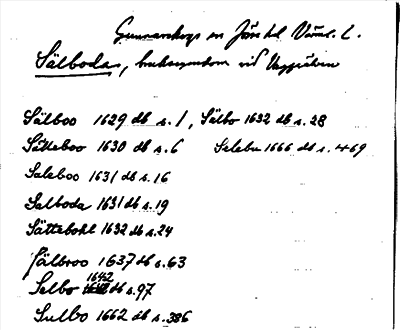 Gunnarskogs sn Jösse hd Värml. l.
Sälbodas, bruksegendom vid
Sälboo 1629 db s. 1, Sälbo 1632 db s. 28
Sätteboo 1630 db s. 6 Salebu 1666 db s. 469
Saleboo 1631 db s. 16
Salboda 1631 db s. 19
Sättebohl 1632 db s. 24
Sälbroo 1637 db s. 63
Selbo 1642 db s. 97
Sulbo 1662 db s. 386